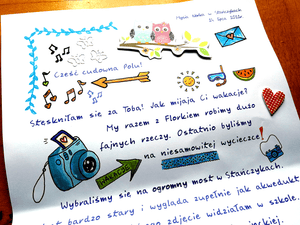 Cześć cudowna Polu!
Stęskniłam się za Tobą! Jak mijają Ci wakacje?
My razem z Florkiem robimy dużo
fajnych rzeczy. Ostatnio byliśmy
na niesamowitej wycieczce!
WAKACJE
Wybraliśmy się na ogromny most w Stańczykach.
bardzo stary i wygląda zupełnie jak akwedukt
zdjęcie widziałam w szkole.